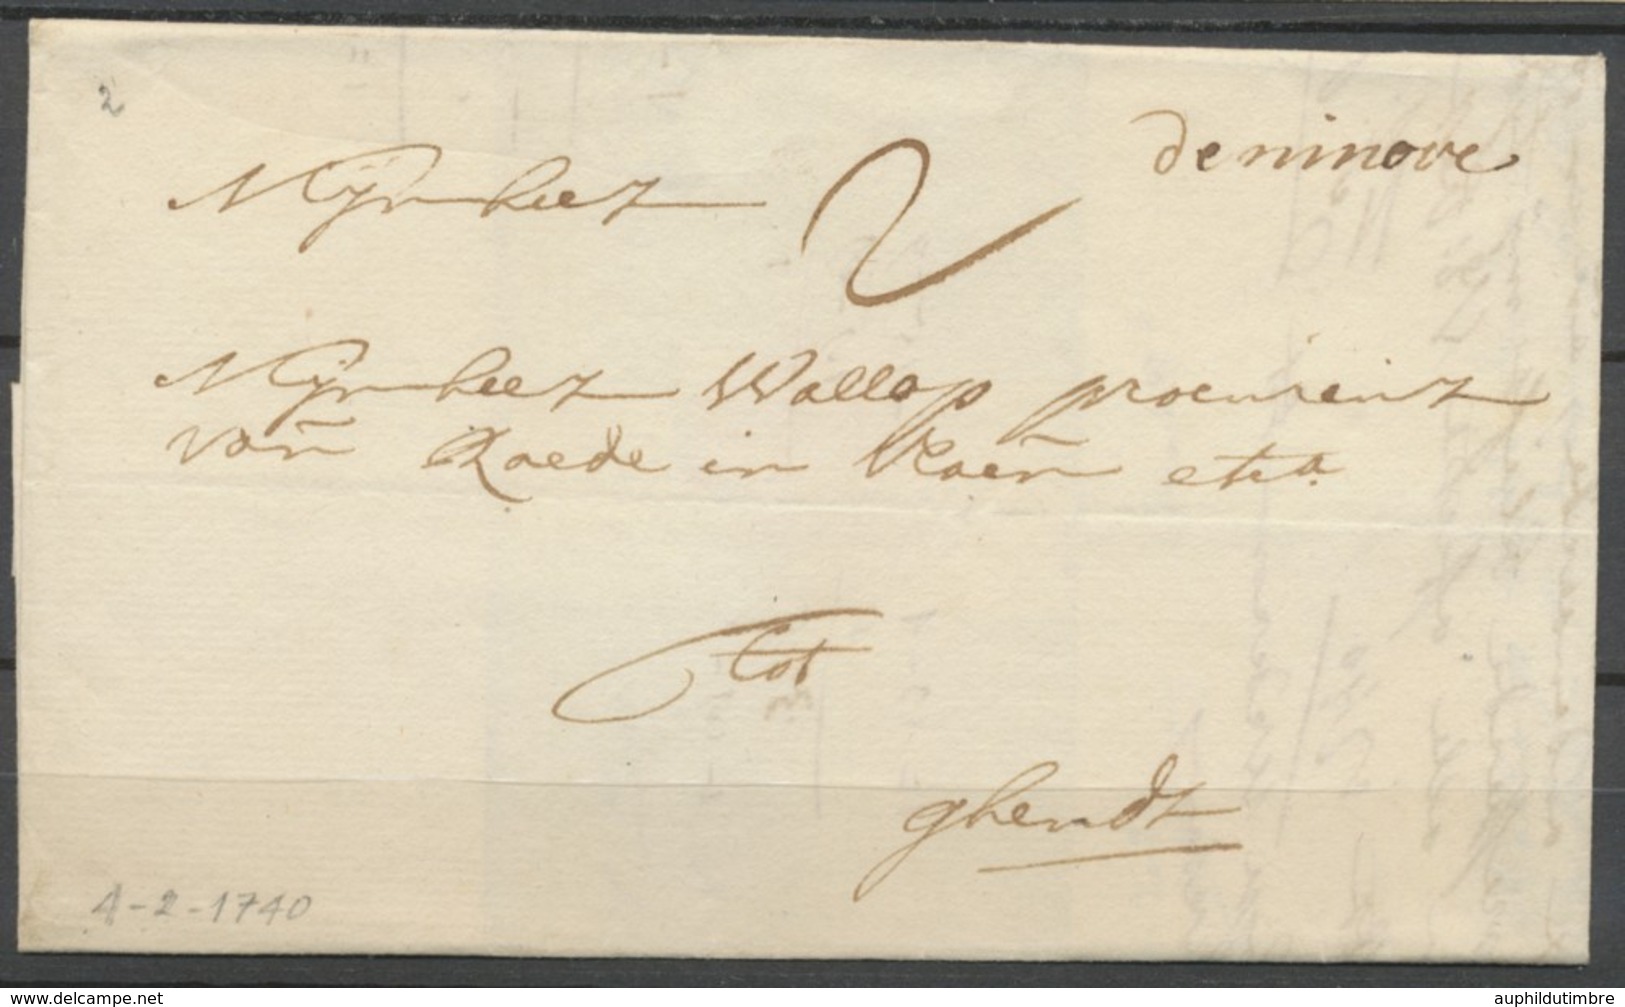 2
de ninove
Mijn heer
2
Mijn heer Wallop procureur
van Raede in Vlaen etca
tot
ghendt
1-2-1740
delcampe.net
auphildutimbre